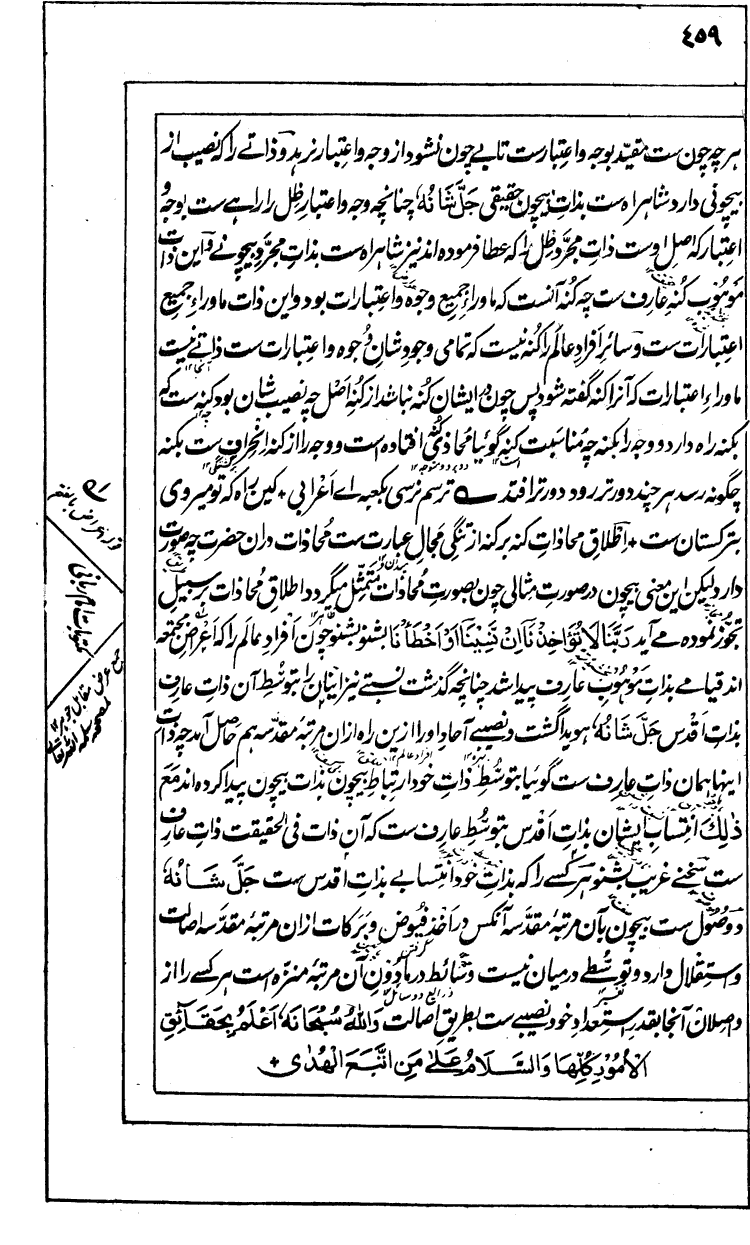 ٤٥٩
هر چه چون ست مقید بوجه و اعتبارست تا بے چون نشود از وجه و اعتبار نرهد و ذاتے را که نصیب از
بیچونی دارد شاهراه ست بذات بیچون حقیقی جَلَّ شَانُهٗ چنانچه وجه و اعتبارِ ظل را راهے ست بوجه و
اعتبار که اصل اوست ذاتِ مجرّد ظل را که عطا فرموده اند نیز شاهراه ست بذاتِ مجرّد بیچونے و این ذات
مَوْهُوب کُنهِ عارف ست چه کنه آنست که ماوراءِ جمیع وجوه و اعتبارات بود و این ذات ماوراءِ جمیع
اعتبارات ست و سائر افرادِ عالم را کُنه نیست که تمامی وجودِ شان وُجوه و اعتبارات ست ذاتے نیست
ماوراءِ اعتبارات که آنرا کنه گفته شود پس چون در ایشان کُنه نباشد از کُنهِ اصل چه نصیب شان بود کنه ست که
بکنه راه دارد و وجه را بکنه چه مناسبت کنه گوئیا محاذیِ کنه افتاده است و وجه را از کنه انحراف ست بکنه
چگونه رسد هر چند دورتر رود دورتر افتد ؎ ترسم نرسی بکعبه اے اعرابی ٭ کین راه که تو میروی
بترکستان ست ٭ اطلاقِ محاذاتِ کنه بر کنه از تنگیِ مجالِ عبارت ست مُحاذات دران حضرت چه صورت
دارد لیکن این معنیِ بیچون در صورتِ مثالی چون بصورتِ مُحاذات مُتَمَثِّل میگردد اطلاقِ مُحاذات بر سبیلِ
تجوّز نموده مے آید رَبَّنَا لَا تُؤَاخِذْنَا اِنْ نَسِیْنَا اَوْ اَخْطَأْنَا بشنو بشنو چون افرادِ عالم را که اَعْراضِ مجتمعه
اند قیامے بذاتِ مَوْهُوبِ عارف پیدا شد چنانچه گذشت نسبتے نیز اینان را بتوسّطِ آن ذاتِ عارف
بذاتِ اقدس جَلَّ شَانُهٗ هویدا گشت و نصیبے آحاد او را ازین راه ازان مرتبهٔ مقدسه هم حاصل آمد چه ذاتِ
اینها همان ذاتِ عارف ست گوئیا بتوسّطِ ذاتِ خود ارتباطِ بیچون بذات بیچون پیدا کرده اند مَعَ
ذٰلِكَ انتساب ایشان بذاتِ اقدس بتوسّطِ عارف ست که آن ذات فی الحقیقت ذاتِ عارف
ست سخنے غریب بشنو هر کسے را که بذاتِ خود انتسابے بذاتِ اقدس ست جَلَّ شَانُهٗ
و وُصول ست بیچون بآن مرتبهٔ مقدّسه آنکس در اَخذِ فیوض و برکات ازان مرتبهٔ مقدسه اصالت
و استقلال دارد و توسّطے درمیان نیست وسائط در مادُونِ آن مرتبهٔ منزّه است هر کسے را از
واصلانِ آنجا بقدرِ استعدادِ خود نصیبے ست بطریقِ اصالت وَاللّٰهُ سُبْحَانَهٗ اَعْلَمُ بِحَقَائِقِ
الْاُمُوْرِ کُلِّهَا وَالسَّلَامُ عَلٰی مَنِ اتَّبَعَ الْهُدٰی ٭
مکتوبات امام ربانی